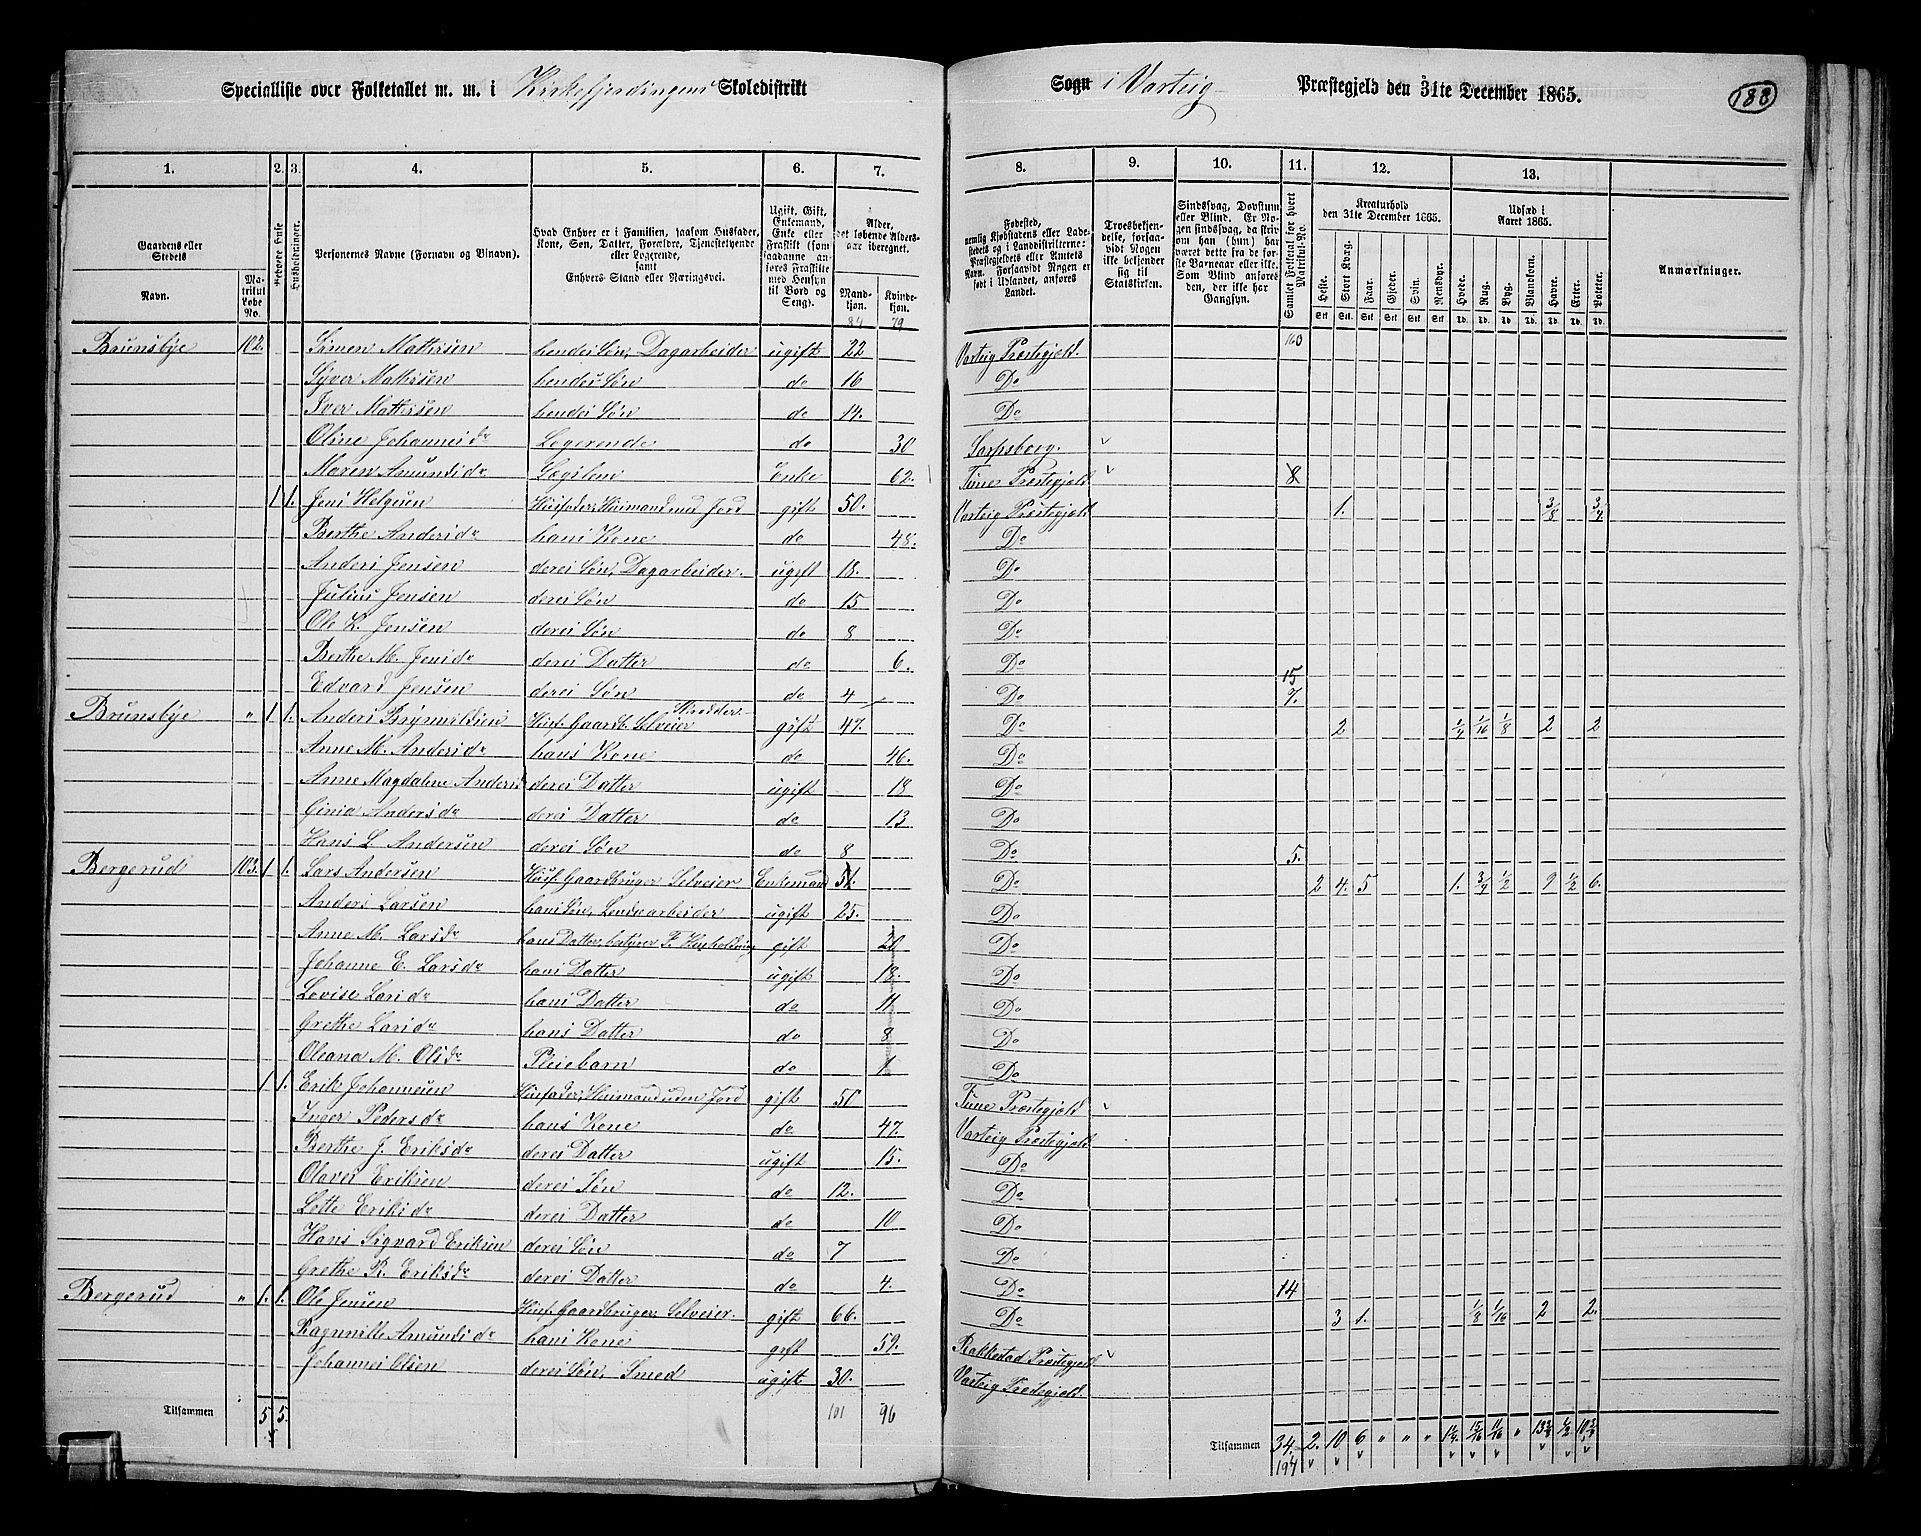 Specialliste over Folketallet m. m. i Kirkefjerdingens Skoledistrikt Sogn i Varteig Præstegjeld den 31te December 1865. 188
1. 2. 3. 4. 5. 6. 7. 8. 9. 10. 11. 12. 13.
Gaardens eller Stedets Navn. Matrikul Løbe No. Beboede Huse Husholdninger. Personernes Navne (Fornavn og Tilnavn). Hvad Enhver er i Familien, saasom Husfader, Kone, Søn, Datter, Forældre, Tjenstetyende eller Logerende, samt Enhvers Stand eller Næringsvei. Ugift, Gift, Enkemand, Enke eller Fraskilt (som saadanne anføres Fraskilte med Hensyn til Bord og Seng). Alder, det løbende Aldersaar iberegnet. Mandkjøn. Kvindekjøn. Fødested, nemlig Kjøbstadens eller Ladestedets og i Landdistrikterne: Præstegjeldets eller Amtets Navn. Forsaavidt Nogen er født i Udlandet, anføres Landet. Troesbekjendelse, forsaavidt Nogen ikke bekjender sig til Statskirken. Sindssvag, Døvstum eller Blind. Er Nogen sindssvag, da skrives om han (hun) har været dette fra de første Barneaar eller ikke. Som Blind anføres den, der ikke har Gangsyn. Samlet Folketal for hvert Matrikul-No. Kreaturhold den 31te December 1865. Heste. Stort Kvæg. Faar. Gjeder. Svin. Rensdyr. Udsæd i Aaret 1865. Hvede. Rug. Byg. Blandkorn. Havre. Erter. Poteter. Anmærkninger.
84 79
Brunsbye 102. Simen Mathisen hendes Søn, Dagarbeider ugift 22 Varteig Præstegjeld. 160
Syver Mathisen hendes Søn do 16 Do
Iver Mathisen hendes Søn do 14. Do
Oline Johannesdr Logerende do 30 Sarpsborg.
Maren Amundsdr Lægslem Enke 62. Tune Præstegjeld 8
1 1. Jens Helgesen Husfader, Husmand med Jord gift 50. Varteig Præstegjeld 1. 3/8 3/4
Berthe Andersdr hans Kone do 48. Do
Anders Jensen deres Søn, Dagarbeider. ugift 18. Do
Julius Jensen deres Søn do 15 Do
Ole L. Jensen deres Søn do 8 Do
Berthe M. Jensdr deres Datter do 6. Do
Edvard Jensen deres Søn do 4 Do 15 7.
Brunsbye " 1 1. Anders Brynildsen Husf. Gaardb. Selveier Skrædder gift 47. Do 2 1/4 1/16 1/8 2 2
Anne M. Andersdr hans Kone do 46. Do
Anne Magdalene Andersd deres Datter ugift 18 Do
Ginia Andersdr deres Datter do 13 Do
Hans L. Andersen deres Søn do 8 Do 5.
Bergerud 103. 1 1. Lars Andersen Husf. Gaardbruger Selveier Enkemand 51. Do 2 4. 5 1. 3/4 1/2 9 1/2 6.
Anders Larsen hans Søn, Landarbeider ugift 25. Do
Anne M. Larsdr hans Datter, bestyrer F. Husholdning gift 20 Do
Johanne E. Larsdr hans Datter ugift 18. Do
Lovise Larsdr hans Datter do 11. Do
Grethe Larsdr hans Datter do 8 Do
Oleana M. Olsdr Pleiebarn do 1 Do
1 1. Erik Johannesen Husfader, Husmand uden Jord gift 50 Tune Præstegjeld
Inger Pedersdr hans Kone do 47. Varteig Præstegjeld
Berthe J. Eriksdr deres Datter ugift 15. Do
Olaves Eriksen deres Søn do 12. Do
Lotte Eriksdr deres Datter do 10 Do
Hans Sigvard Eriksen deres Søn do 7 Do
Grethe R. Eriksdr deres Datter do 4. Do 14
Bergerud " 1. 1. Ole Jensen Husf. Gaardbruger Selveier. gift 66. Do 3 1. 1/8 1/16 2 2.
Ragnille Amundsdr hans Kone gift 59. Rakkestad Præstegjeld
Johannes Olsen deres Søn, Smed ugift 30. Varteig Præstegjeld
Tilsammen 5 5. 101 96 Tilsammen 34. 2. 10 6 " " " 1 1/4 15/16 11/16 " 13 3/8 1/2 10 3/4
197